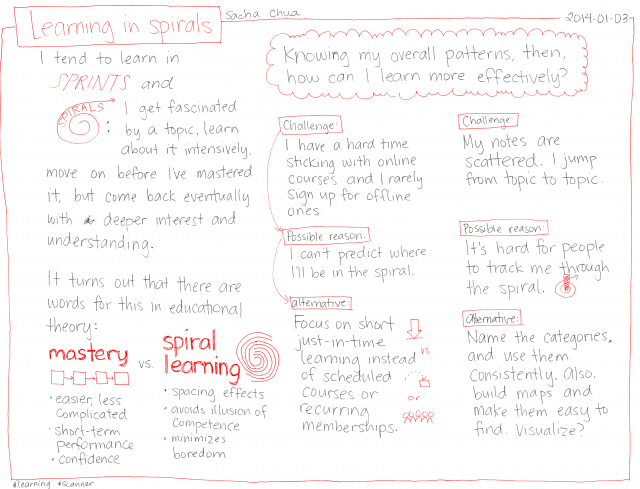 Learning in spirals
Sacha Chua
2014-01-03
I tend to learn in
SPRINTS and
SPIRALS
: I get fascinated
by a topic, learn
about it intensively,
move on before I've mastered
it, but come back eventually
with deeper interest and
understanding.
It turns out that there are
words for this in educational
theory:
mastery
vs.
spiral
learning
• easier, less
complicated
• short-term
performance
• confidence
• spacing effects
• avoids illusion of
competence
• minimizes
boredom
Knowing my overall patterns, then,
how can I learn more effectively?
Challenge:
I have a hard time
sticking with online
courses and I rarely
sign up for offline
ones
Possible reason:
I can't predict where
I'll be in the spiral.
alternative:
Focus on short
just-in-time
learning instead
of scheduled
courses or
recurring
memberships.
vs
or
Challenge:
My notes are
scattered. I jump
from topic to topic.
Possible reason:
It's hard for people
to track me through
the spiral.
Alternative:
Name the categories,
and use them
consistently. Also,
build maps and
make them easy to
find. Visualize?
#learning #scanner